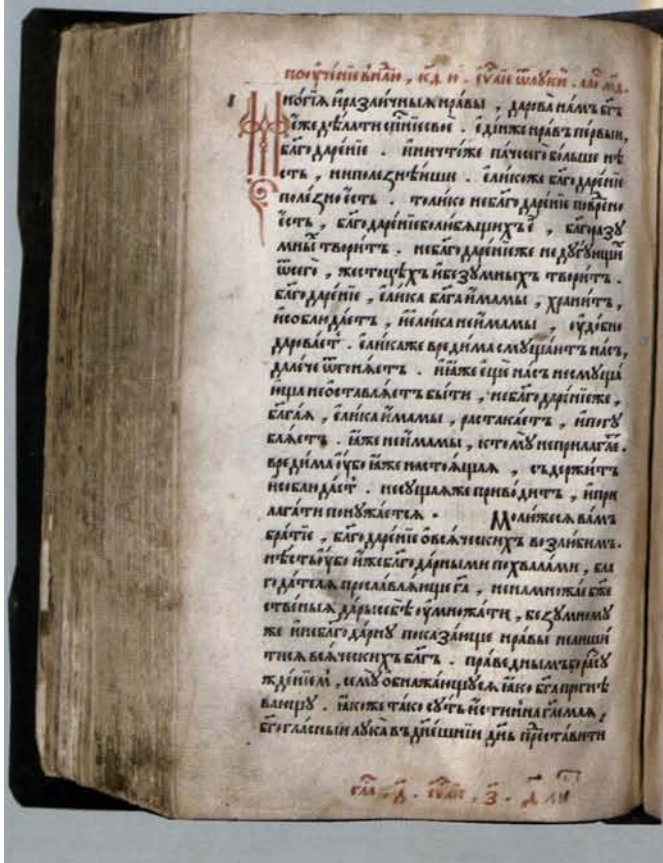 поꙋче́нїе в нлю , к҃д и҃ . є҆ѵⷢ҇лїе ѿ лꙋкѝ .
Мно́гїѧ и҆ разли́чныѧ нра́вы , дарова̀ на́мъ бг҃ъ
ꙗ҆́же дѣ́лати сп҃се́нїе своѐ . є҆ди́нже нра́въ пе́рвыи ,
бл҃годаре́нїе . и҆ ничто́же па́че сего̀ бо́льше нѣ́
сть , ни поле́знѣиши . є҆ли́коже бл҃годаре́нїе
поле́зно є҆́сть . толи́ко небл҃годаре́нїе повре́но
є҆́сть , бл҃годаре́нїе болибѧщихъ є҆̀ , бл҃горазꙋ́
мны твори́тъ . небл҃годаре́нїеже недꙋ́гꙋющїѧ
ѿ сего̀ , жестоцѣ́хъ и҆ безꙋ́мныхъ твори́тъ .
бл҃годаре́нїе , є҆ли́ка бл҃га́ѧ и҆́мамы , храни́тъ ,
и҆ соблюда́етъ , и҆ є҆ли́ка не и҆́мамы , ᲂу҆до́бно
дарова́етъ . є҆ли́каже вреди́ма смꙋща́ютъ на́съ ,
дале́че ѿгонѧ́етъ . и҆ ꙗ҆́же є҆щѐ на́съ не смꙋща́
юща не ѡ҆ставлѧ́етъ бы́ти , небл҃годаре́нїеже ,
бл҃га́ѧ , є҆ли́ка и҆́мамы , растака́етъ , и҆ погꙋ
блѧ́етъ . ꙗ҆́же не и҆́мамы , к томꙋ̀ не прилага́е .
вреди́ма ᲂу҆́бо ꙗ҆́же настоѧ́щаѧ , съдержи́тъ
и҆ соблюда́етъ . не сꙋ́щаѧже приво́дитъ , и҆ при
лага́ти понꙋжа́етсѧ . Молю́жесѧ ва́мъ
бра́тїе , бл҃годаре́нїе ѡ҆ всѧ́ческихъ возлю́бимъ .
нѣ́сть ᲂу҆́бо и҆́же бл҃года́рными похвала́ми , бла
года́телѧ прославлѧ́юще г҃а , не намножа́е бж҃е
ственыѧ да́ры себѣ̀ ᲂу҆множа́ти , безꙋ́мномꙋ
же и҆ небл҃года́рнꙋ показа́юще нра́вы не лиши́
тисѧ всѧ́ческихъ бл҃гъ . пра́веднымъ бо расꙋ
жде́нїемъ , семꙋ̀ ѡ҆бнажа́ющꙋсѧ ꙗ҆́ко бг҃а прогнѣ́
вающꙋ . ꙗ҆́коже та́ко сꙋ́ть и҆́стинна гл҃емаѧ ,
бг҃огла́сныи лꙋка̀ въ дн҃ешнїи дн҃ь преста́вити
гла҃ . д҃ . є҆ѵⷢ҇лїе . з҃ .